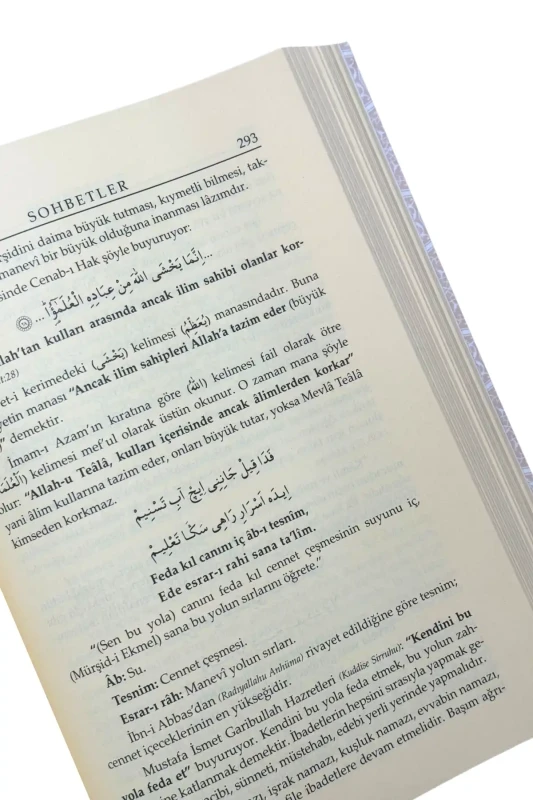 293
SOHBETLER
rşidini daima büyük tutması, kıymetli bilmesi, tak-
manevî bir büyük olduğuna inanması lâzımdır.
sinde Cenab-ı Hak şöyle buyuruyor:
...اِنَّمَا يَخْشَى اللّٰهَ مِنْ عِبَادِهِ الْعُلَمٰٓؤُ۬ا...
llah'tan kulları arasında ancak ilim sahibi olanlar kor-
:28)
et-i kerimedeki (يَخْشَى) kelimesi (يُعَظِّمُ) manasındadır. Buna
yetin manası "Ancak ilim sahipleri Allah'a tazim eder (büyük
" demektir.
İmam-ı Azam'ın kıratına göre (اللّٰه) kelimesi fail olarak ötre
(اَلْعُلَمَا) kelimesi mef'ul olarak üstün okunur. O zaman mana şöyle
olur: "Allah-u Teâlâ, kulları içerisinde ancak âlimlerden korkar"
yani âlim kullarına tazim eder, onları büyük tutar, yoksa Mevlâ Teâlâ
kimseden korkmaz.
فَدَا قِيلْ جَانِنِى اِيچْ آبِ تَسْنِيمْ
اِيدَه اَسْرَارِ رَاهِى سَكَا تَعْلِيمْ
Feda kıl canını iç âb-ı tesnîm,
Ede esrar-ı rahi sana ta'lim.
"(Sen bu yola) canını feda kıl cennet çeşmesinin suyunu iç,
(Mürşid-i Ekmel) sana bu yolun sırlarını öğrete."
Âb: Su.
Tesnim: Cennet çeşmesi.
Esrar-ı râh: Manevî yolun sırları.
İbn-i Abbas'dan (Radıyallahu Anhüma) rivayet edildiğine göre tesnim;
cennet içeceklerinin en yükseğidir.
Mustafa İsmet Garibullah Hazretleri (Kuddise Sirruhu); "Kendini bu
yola feda et" buyuruyor. Kendini bu yola feda etmek, bu yolun zah-
ine katlanmak demektir. İbadetlerin hepsini sırasıyla yapmak ge-
acibi, sünneti, müstehabı, edebi yerli yerinde yapmalıdır.
nazı, işrak namazı, kuşluk namazı, evvabin namazı,
file ibadetlere devam etmelidir. Başım ağrı-